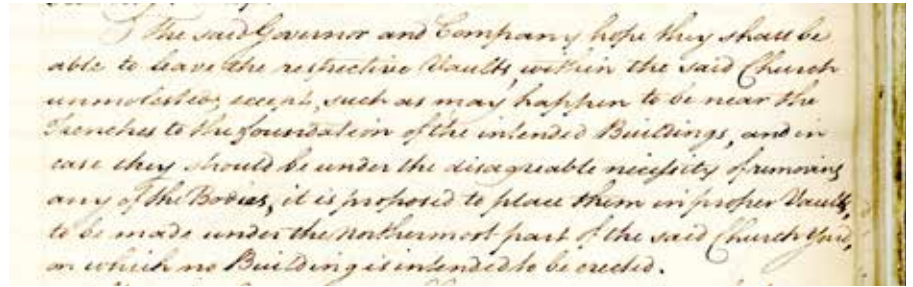 The said Governor and Company hope they shall be
able to leave the respective Vaults, within the said Church
unmolested, except, such as may happen to be near the
Trenches to the foundation of the intended Buildings, and in
case they should be under the disagreable necessity of removing
any of the Bodies, it is proposed to place them in proper Vaults,
to be made under the northermost part of the said Church Yard,
on which no Building is intended to be erected.